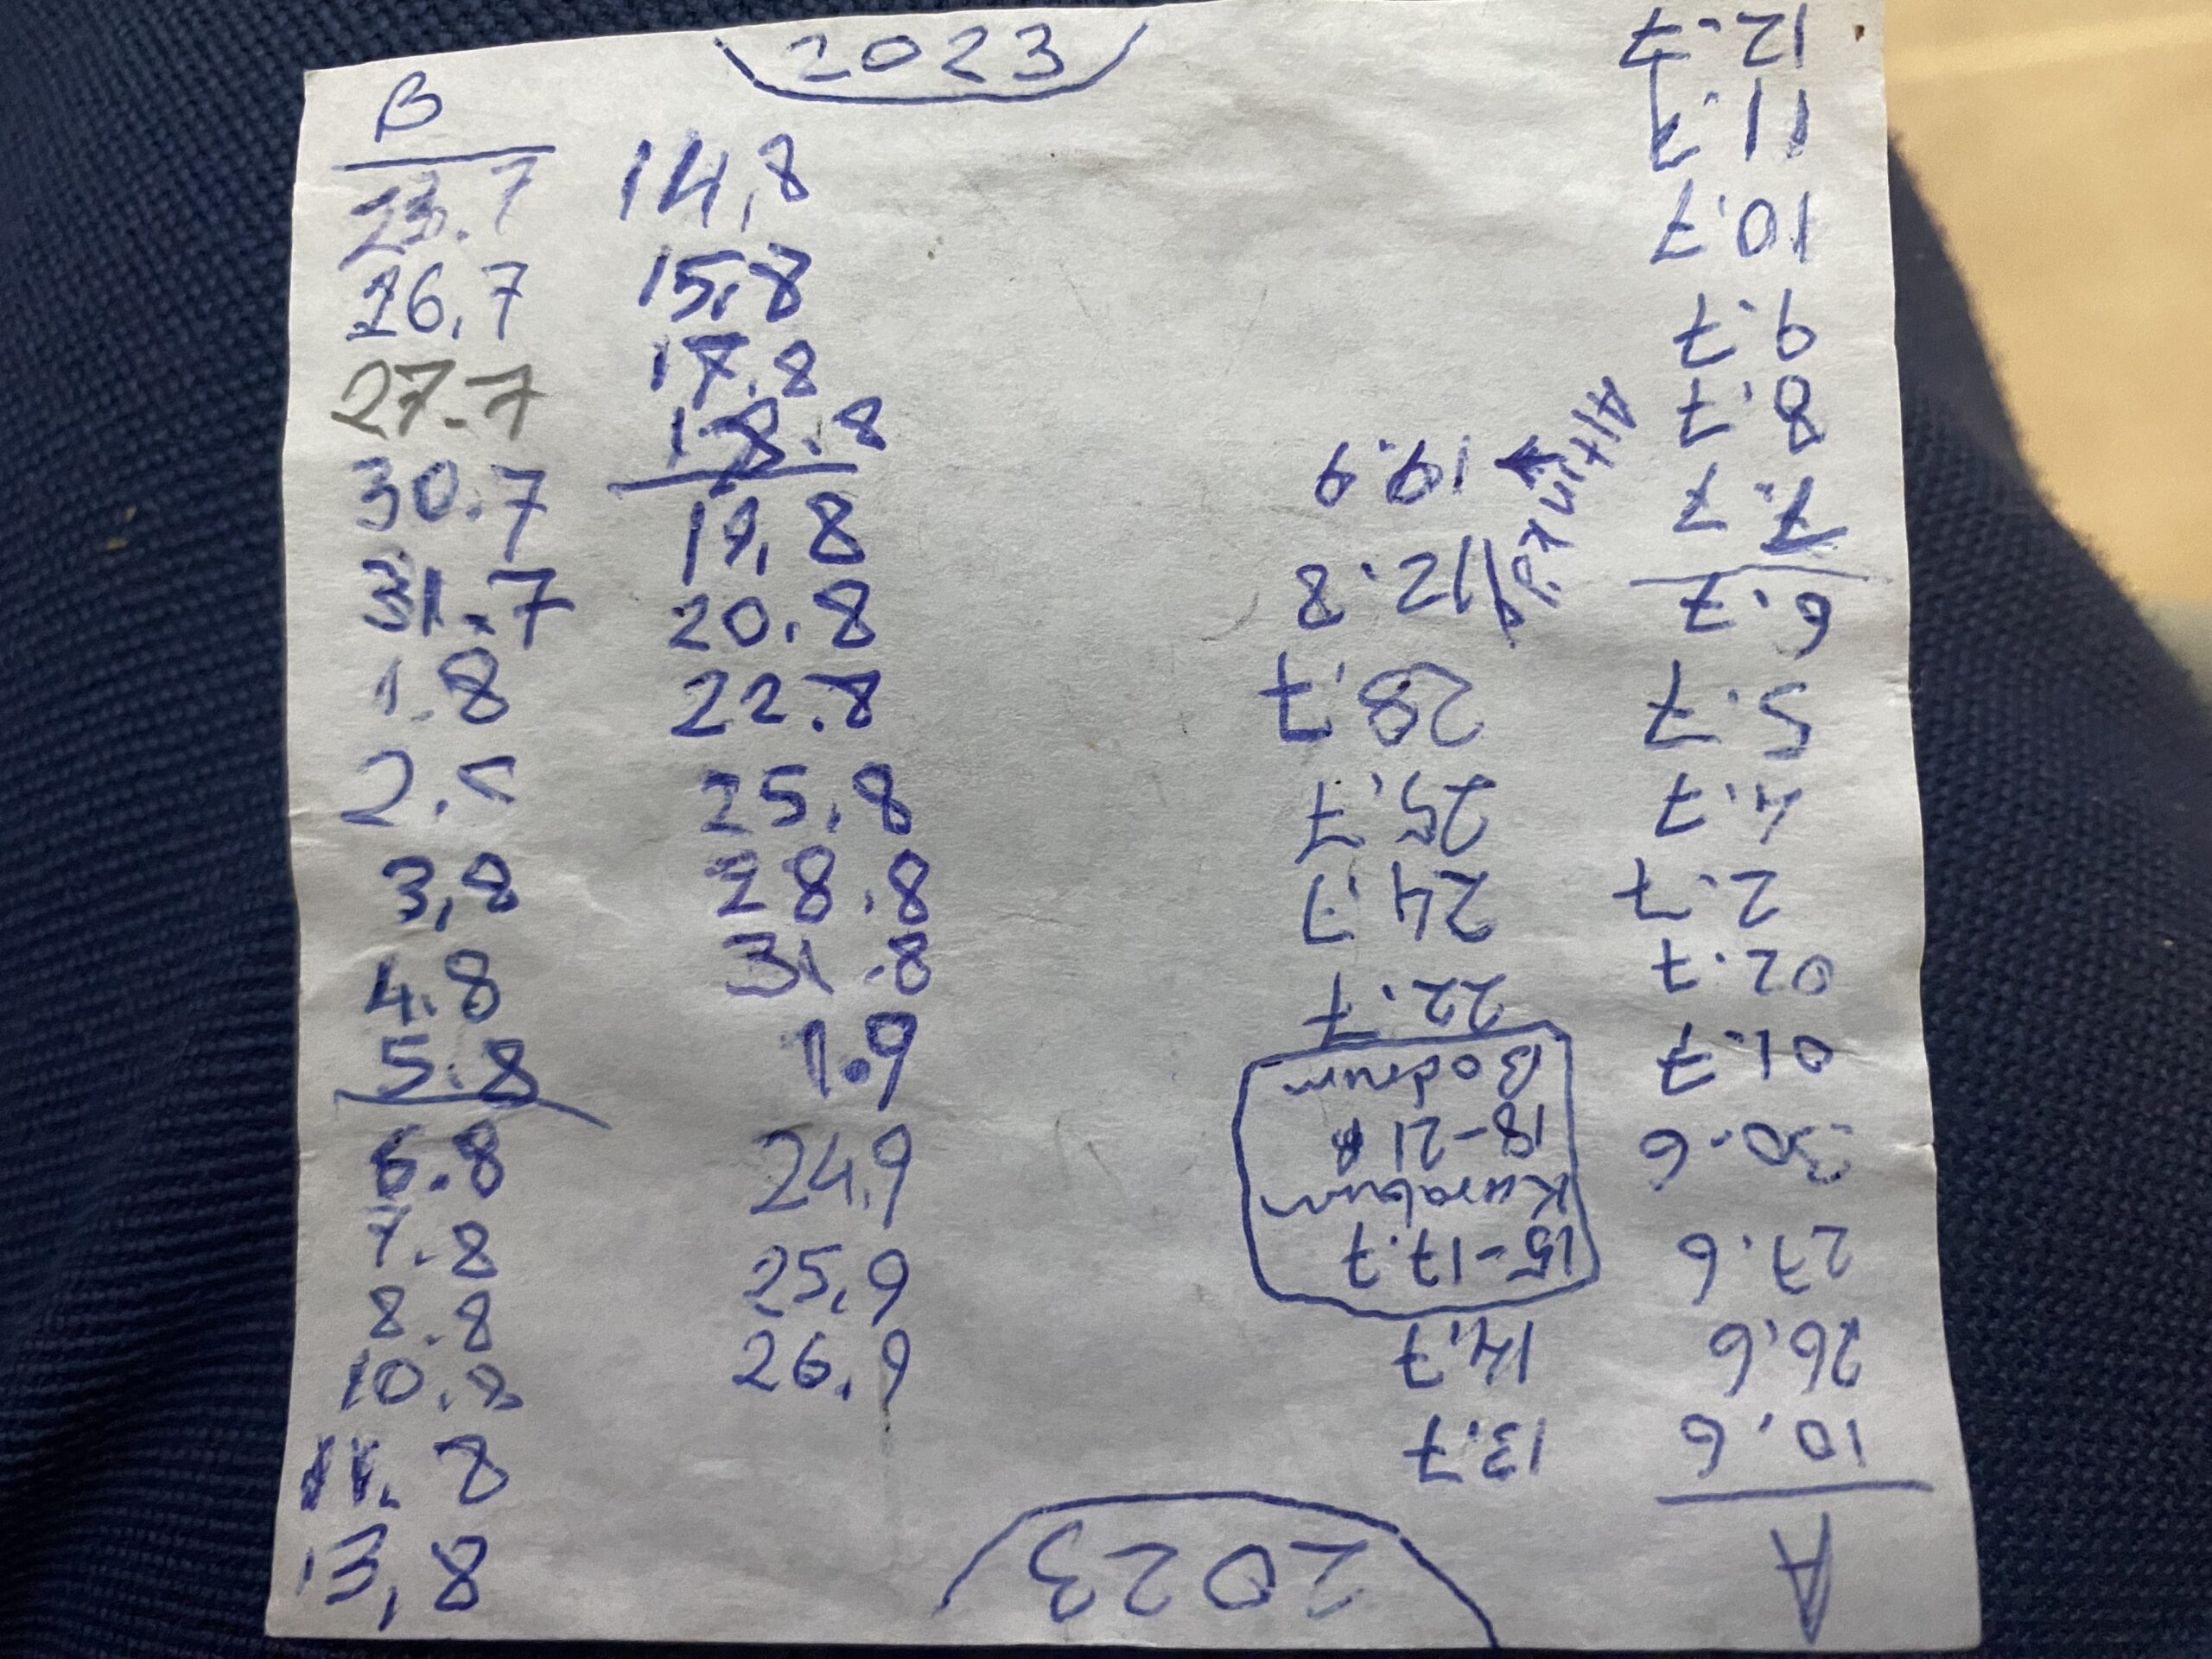 2023
B
23.7
26.7
27.7
30.7
31.7
1.8
2.8
3,8
4.8
5.8
6.8
7.8
8.8
10.8
11.8
13,8
14,8
15,8
17.8
18.8
19,8
20.8
22.8
25.8
28.8
31.8
1.9
24.9
25.9
26.9
2023
A
10.6
26.6
27.6
30.6
01.7
02.7
2.7
4.7
5.7
6.7
7.7
8.7
9.7
10.7
11.7
12.7
13.7
14.7
15-17.7
Kuraburun
18-21
Bodrum
22.7
24.7
25.7
28.7
12.8
19.9